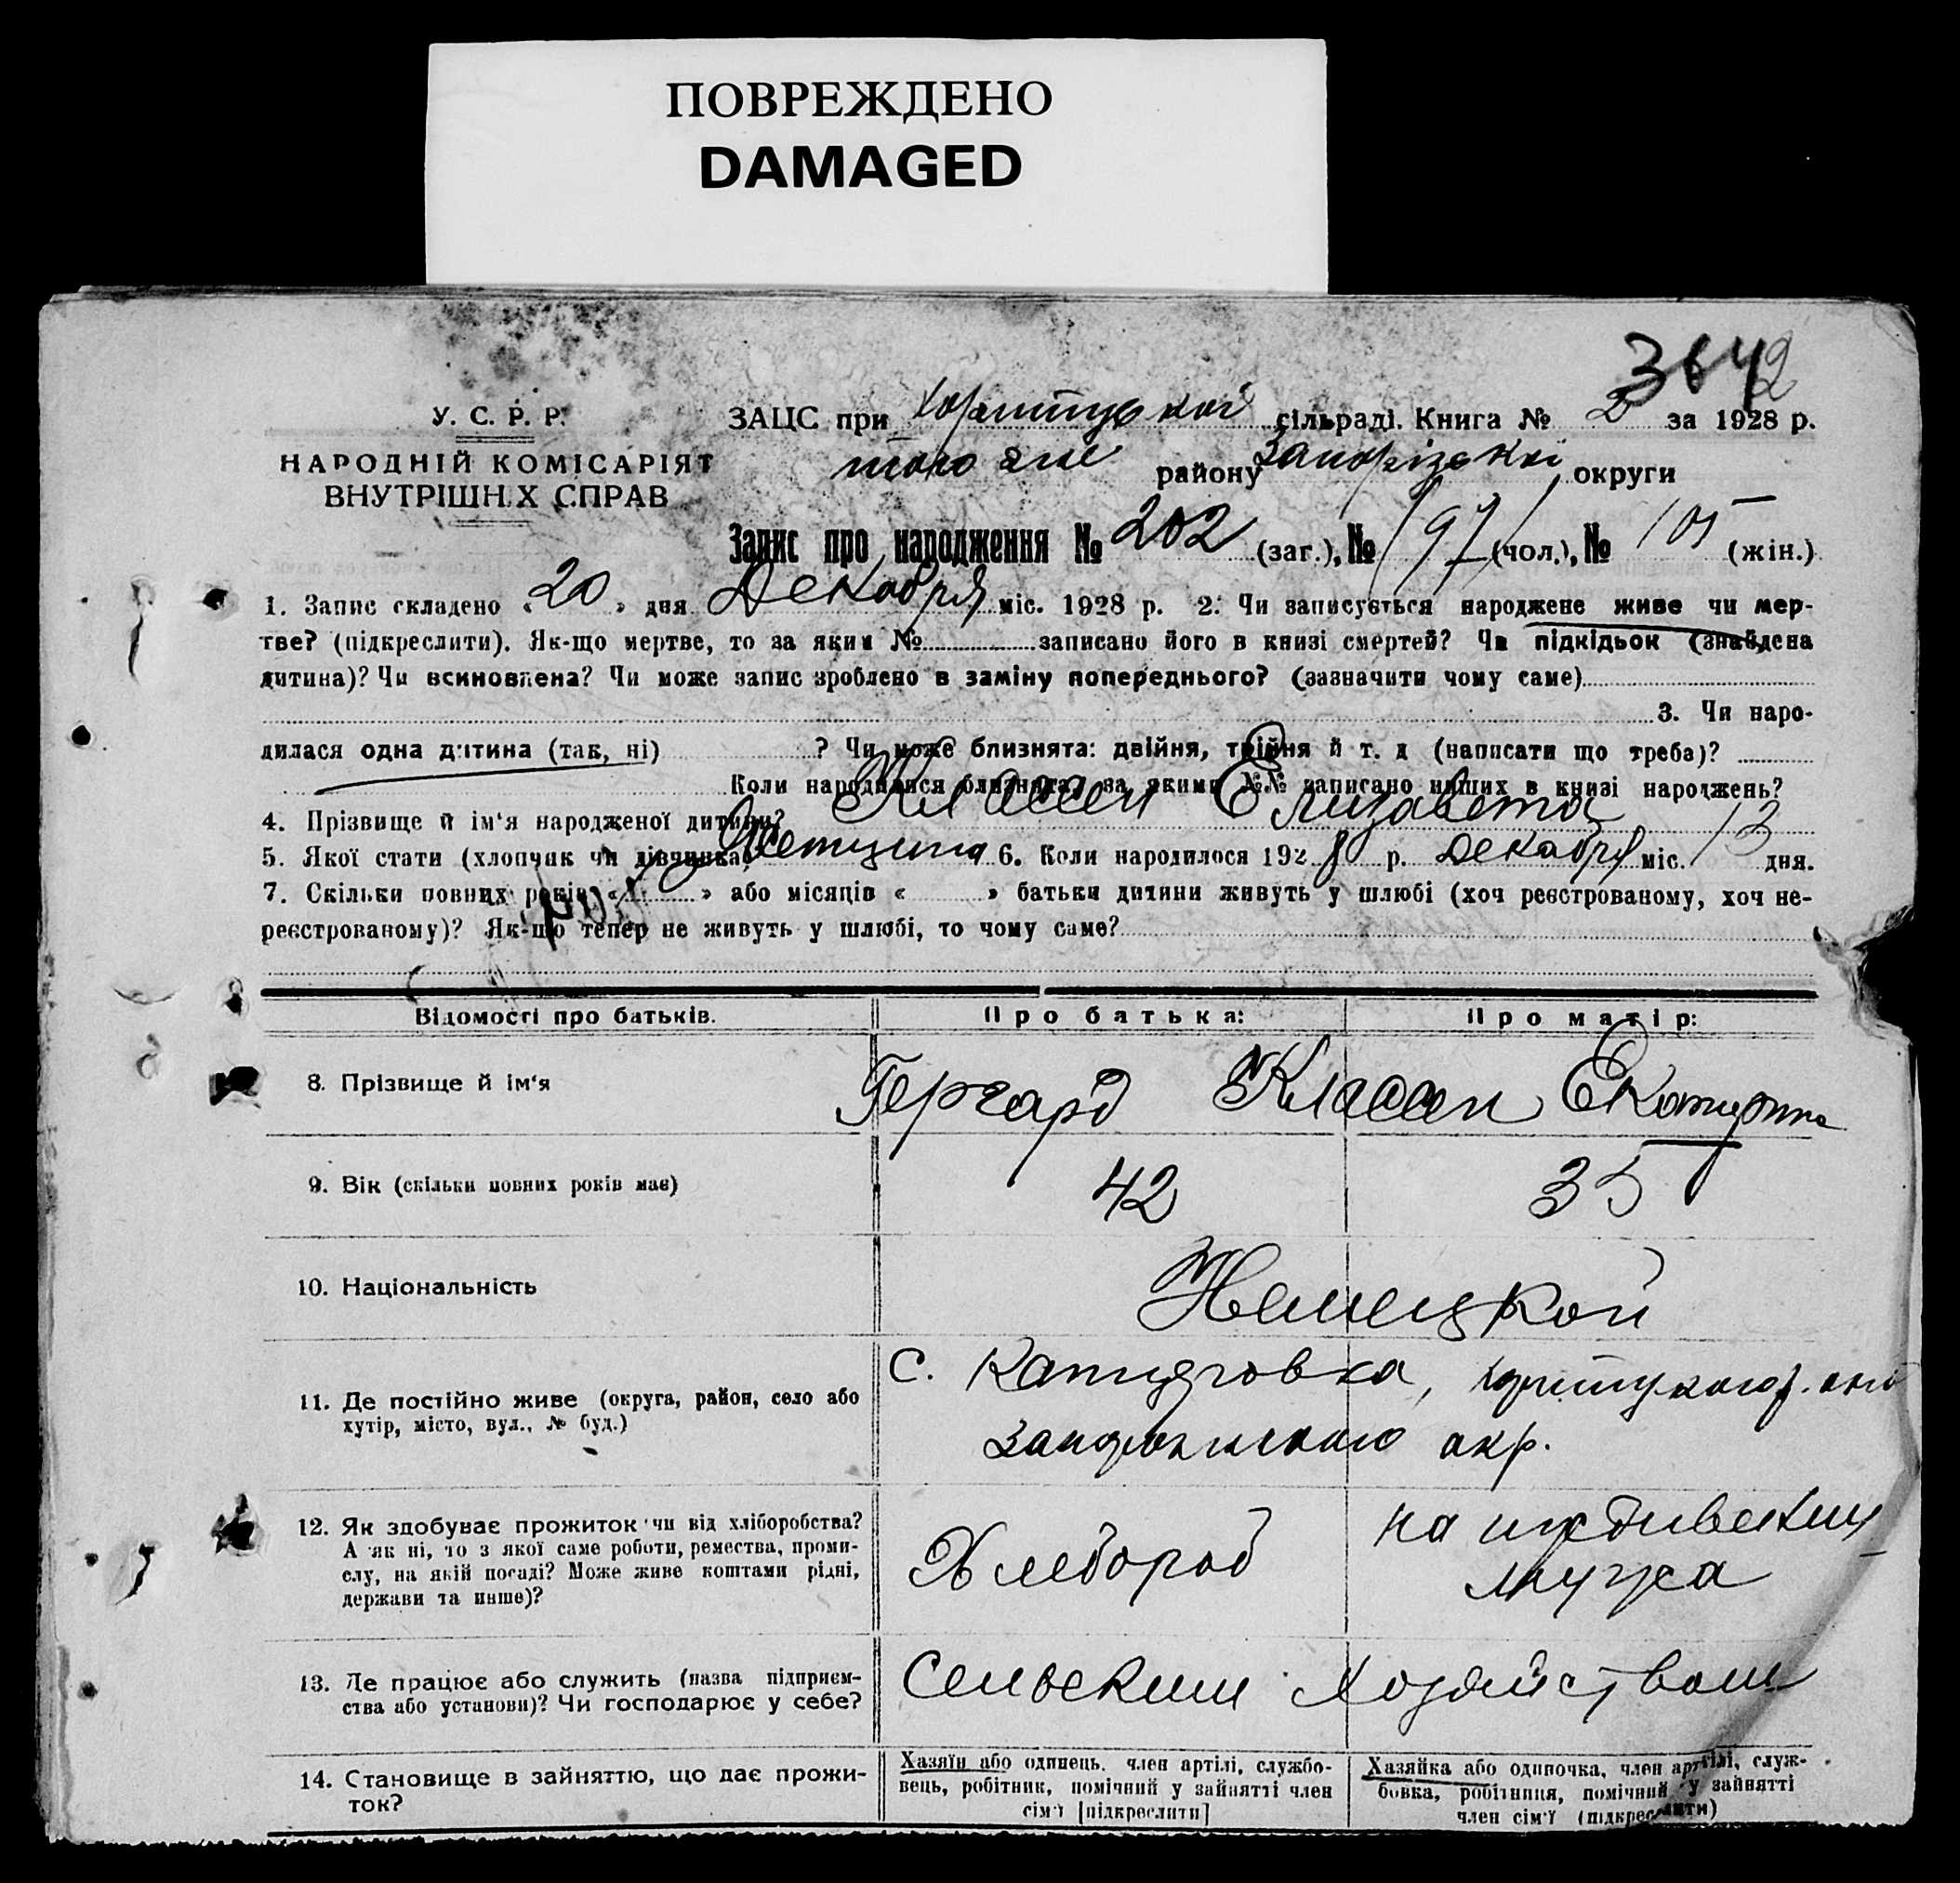 ПОВРЕЖДЕНО
DAMAGED
3642
У. С. Р. Р.
НАРОДНІЙ КОМІСАРІЯТ
ВНУТРІШН.Х СПРАВ
ЗАЦС при Хортицькой сільраді. Книга № 2 за 1928 р.
того же району Запорізькоі округи
Запис про народження № 202 (заг.), № 97 (чол.), № 105 (жін.)
1. Запис складено « 20 » дня Декабря міс. 1928 р. 2. Чи записується народжене живе чи мер-
тве? (підкреслити). Як-що мертве, то за яким № записано його в книзі смертей? Чи підкідьок (знайдена
дитина)? Чи всиновлена? Чи може запис зроблено в заміну попереднього? (зазначити чому саме)
3. Чи наро-
дилася одна дитина (так, ні) ? Чи може близнята: двійня, трійня й т. д (написати що треба)?
Коли народилися близнята, за якими №№ записано инших в книзі народжень?
4. Прізвище й ім‘я народженої дитини? Классен Елизавета
5. Якої стати (хлопчик чи дівчинка) 6. Коли народилося 1928 р. декабря міс. 13 дня.
7. Скільки повних років « » або місяців « » батьки дитини живуть у шлюбі (хоч реєстрованому, хоч не-
реєстрованому)? Як-що тепер не живуть у шлюбі, то чому саме?
Відомості про батьків. Про батька: Про матір:
8. Прізвище й ім‘я Гергард Классен Екатерина
9. Вік (скільки повних років має) 42 35
10. Національність Немецкой
11. Де постійно живе (округа, район, село або
хутір, місто, вул., № буд.)
С. Капустовка, Хортицкого
Запорожского окр.
12. Як здобуває прожиток чи від хліборобства?
А як ні, то з якої саме роботи, ремества, проми-
слу, на якій посаді? Може живе коштами рідні,
держави та инше)?
Хлебороб
на иждивении
мужа
13. Де працює або служить (назва підприєм-
ства або установи)? Чи господарює у себе?
Сельским Хозяйством
14. Становище в зайняттю, що дає прожи-
ток?
Хазяїн або одинець, член артілі, службо-
вець, робітник, помічний у зайнятті член
сім‘ї [підкреслити]
Хазяйка або одиночка, член артілі, служ-
бовка, робітниця, помічний у зайнятті
член сім‘ї (підкреслити)